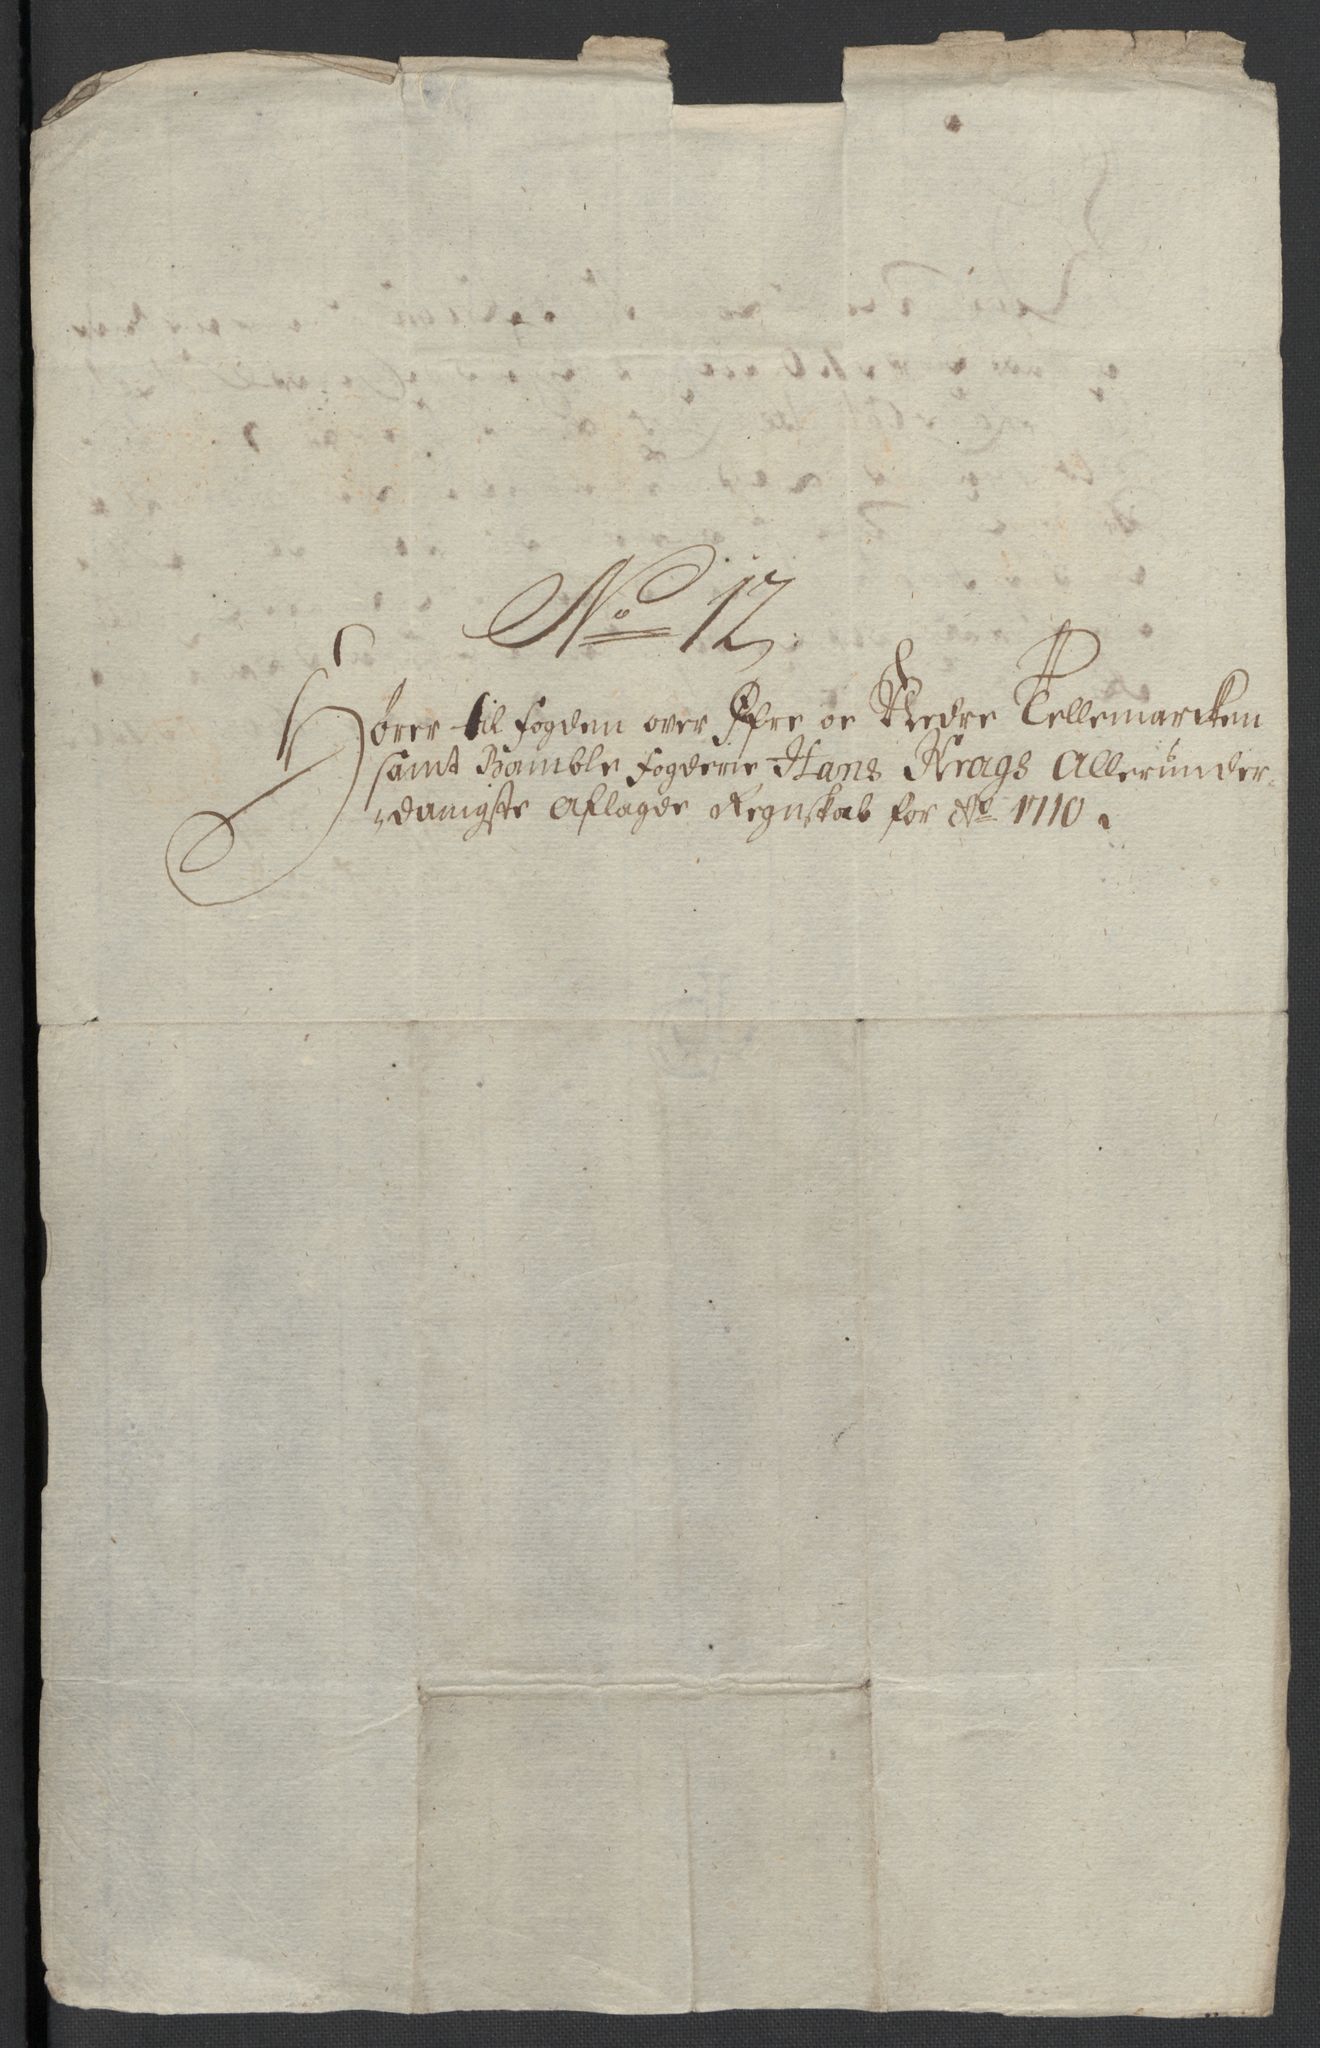 No 12
Hörer til fogden over Øfre oc Nedre Tellemarcken
samt Bamble fogderie Hans Krags Allerunder-
danigste Aflagde Regnskab for Ao 1710